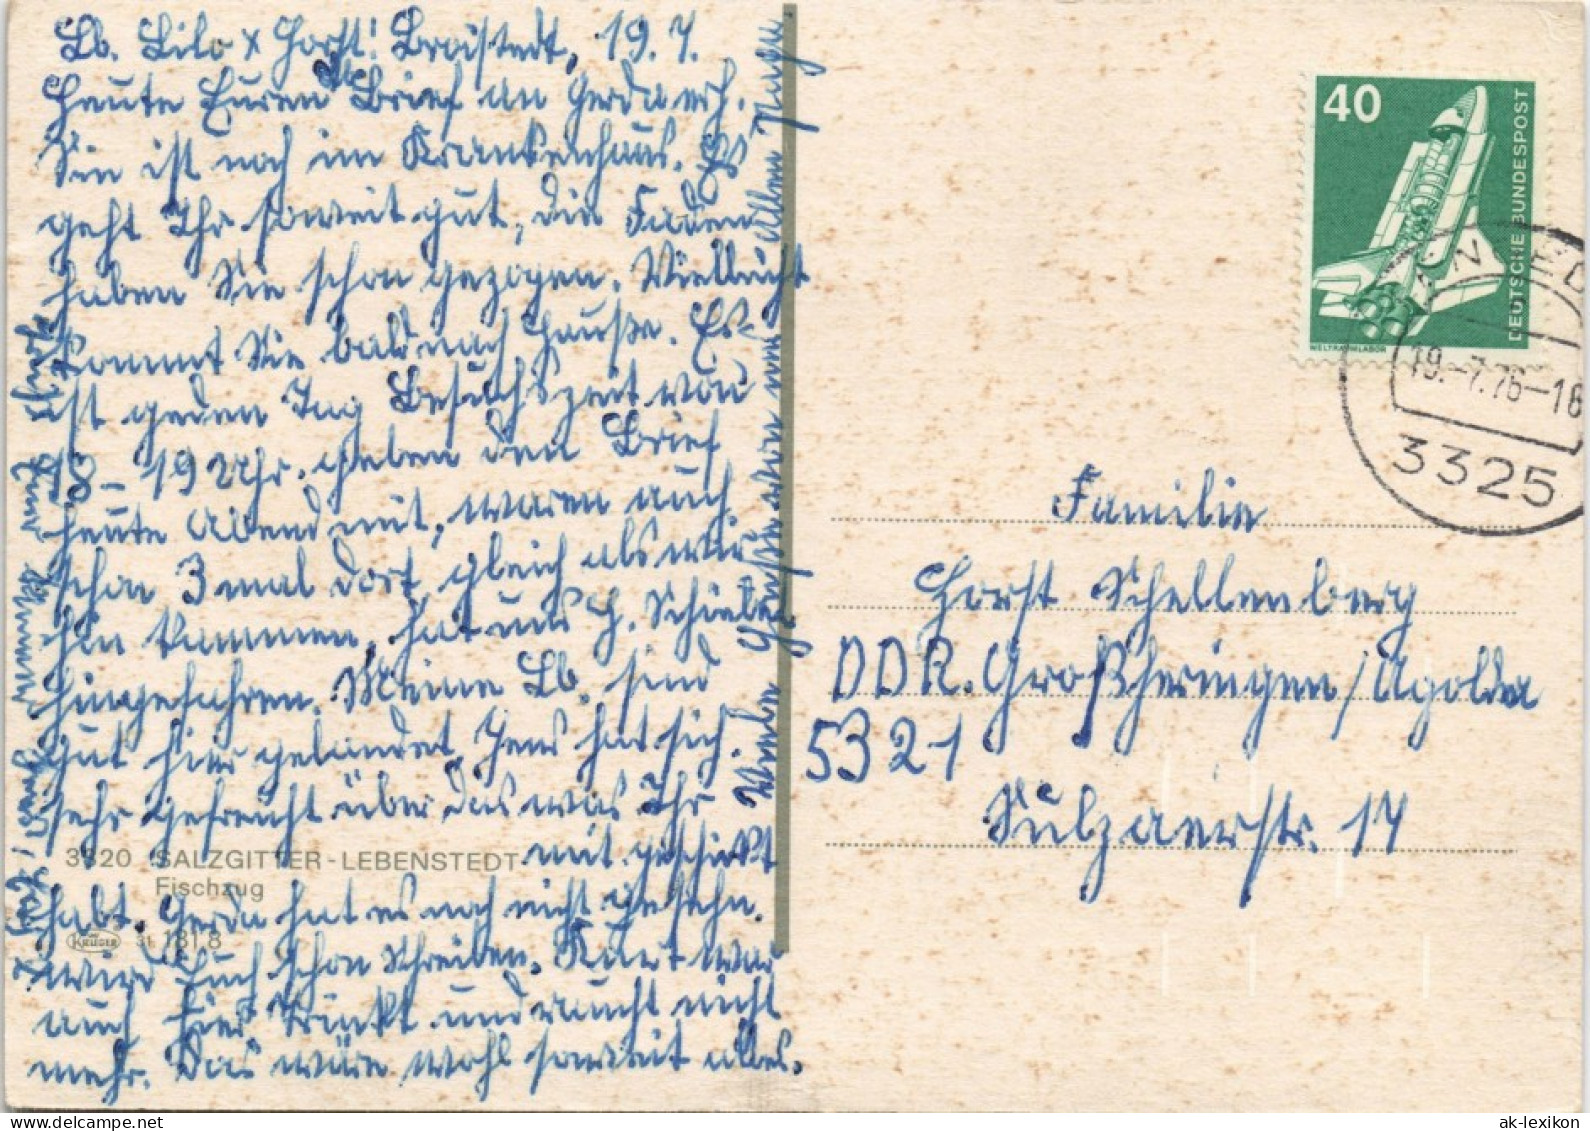 Lb. Lilo x Horst! Broistedt, 19.7.
Heute Euren lb Brief an Gerda erh.
Sie ist noch im Krankenhaus. Es
geht Ihr soweit gut, die Fäden
haben Sie schon gezogen. Vielleicht
kommt Sie bald nach Hauße. Es
ist geden Tag Besuchszeit von
18-19 Uhr. geben den Brief
heute Abend mit, waren auch
schon 3 mal dort, gleich als wir
hin kammen, hat uns H.
hingefahren. Meine Lb. sind
gut hier gelandet, Jens hat sich
sehr gefreucht über das was Ihr
mit geschickt
habt. Gerda hat es noch nicht gesehn.
wird Euch schon schreiben. Kurt war
auch hier Trinkt und raucht nicht
mehr. Das wäre wohl soweit alles.
Viele Grüße von uns Allen
3320 SALZGITTER-LEBENSTEDT
Fischzug
KRÜGER 31 181,8
40
DEUTSCHE BUNDESPOST
WELTRAUMLABOR
19.-7.76-18
3325
Familie
Horst Schellenberg
DDR. Großheringen/Apolda
5321
Sulzaerstr. 17
ak-lexikon
www.delcampe.net